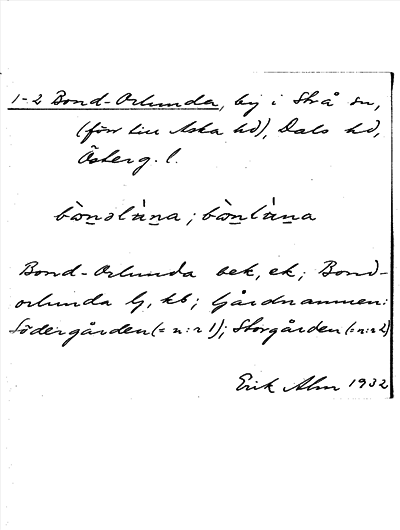 1-2 Bond-Orlunda, by i Strå sn,
(förr till Aska hd), Dals hd,
Österg. l.
bò̱nəlùna; bò̱nlùna
Bond-Orlunda oek, ek; Bond-
orlunda G, kb; Gårdnamnen:
Södergården (= n:r 1); Storgården (= n:r 2)
Erik Alm 1932